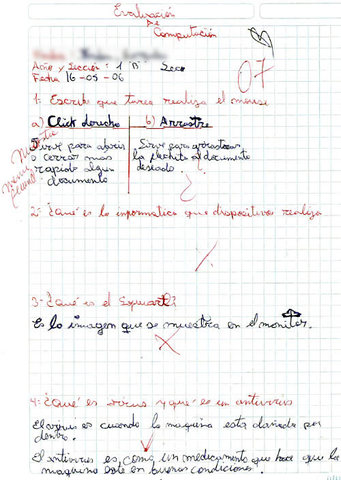 Evaluación
De
Computación
Año y Sección: 1 "B"
Fecha 16-05-06
07
1- Escribe que tarea realiza el mouse
a) Click derecho
b) Arrastre
Sirve para abrir
o cerrar mas
rapido algun
documento
Sirve para arrastrar
la flechita al documento
deseado.
2- ¿Qué es la informatica que dispositivos realiza
3- ¿Qué es el
Es la imagen que se muestra en el monitor.
4- ¿Qué es virus y que es un antivirus
El virus es cuando la maquina esta dañada por
dentro.
El antivirus es como un medicamento que hace que la
maquina este en buenas condiciones.